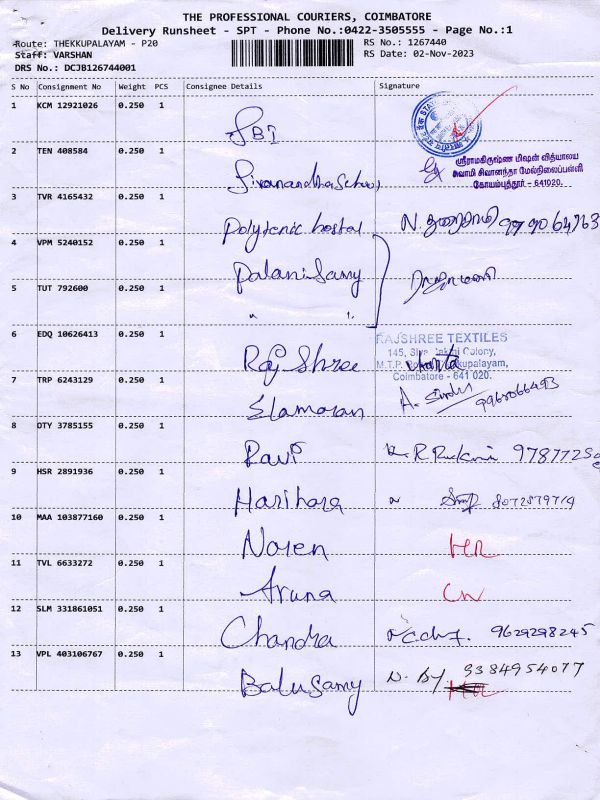 THE PROFESSIONAL COURIERS, COIMBATORE
Delivery Runsheet - SPT - Phone No.:0422-3505555 - Page No.:1
Route: THEKKUPALAYAM - P20
RS No.: 1267440
Staff: VARSHAN
RS Date: 02-Nov-2023
DRS No.: DCJB126744001
S No Consignment No Weight PCS Consignee Details Signature
1 KCM 12921026 0.250 1 SBI
2 TEN 408584 0.250 1 Sivanandha School
ஸ்ரீராமகிருஷ்ண மிஷன் வித்யாலயா
சுவாமி சிவானந்தா மேல்நிலைப்பள்ளி
கோயம்புத்தூர் - 641020.
3 TVR 4165432 0.250 1 Polytecnic hostal N.
4 VPM 5240152 0.250 1 Palanisamy
5 TUT 792600 0.250 1 " "
6 EDQ 10626413 0.250 1 Raj Shree
RAJSHREE TEXTILES
145, Colony,
M.T.P.
Coimbatore - 641 020.
7 TRP 6243129 0.250 1 Elamaran A. Sindu
8 OTY 3785155 0.250 1 Ravi R
9 HSR 2891936 0.250 1 Harihara 8072579719
10 MAA 103877160 0.250 1 Naren HR
11 TVL 6633272 0.250 1 Aruna CN
12 SLM 331861051 0.250 1 Chandra 9629298245
13 VPL 403106767 0.250 1 Balusamy 9384954077